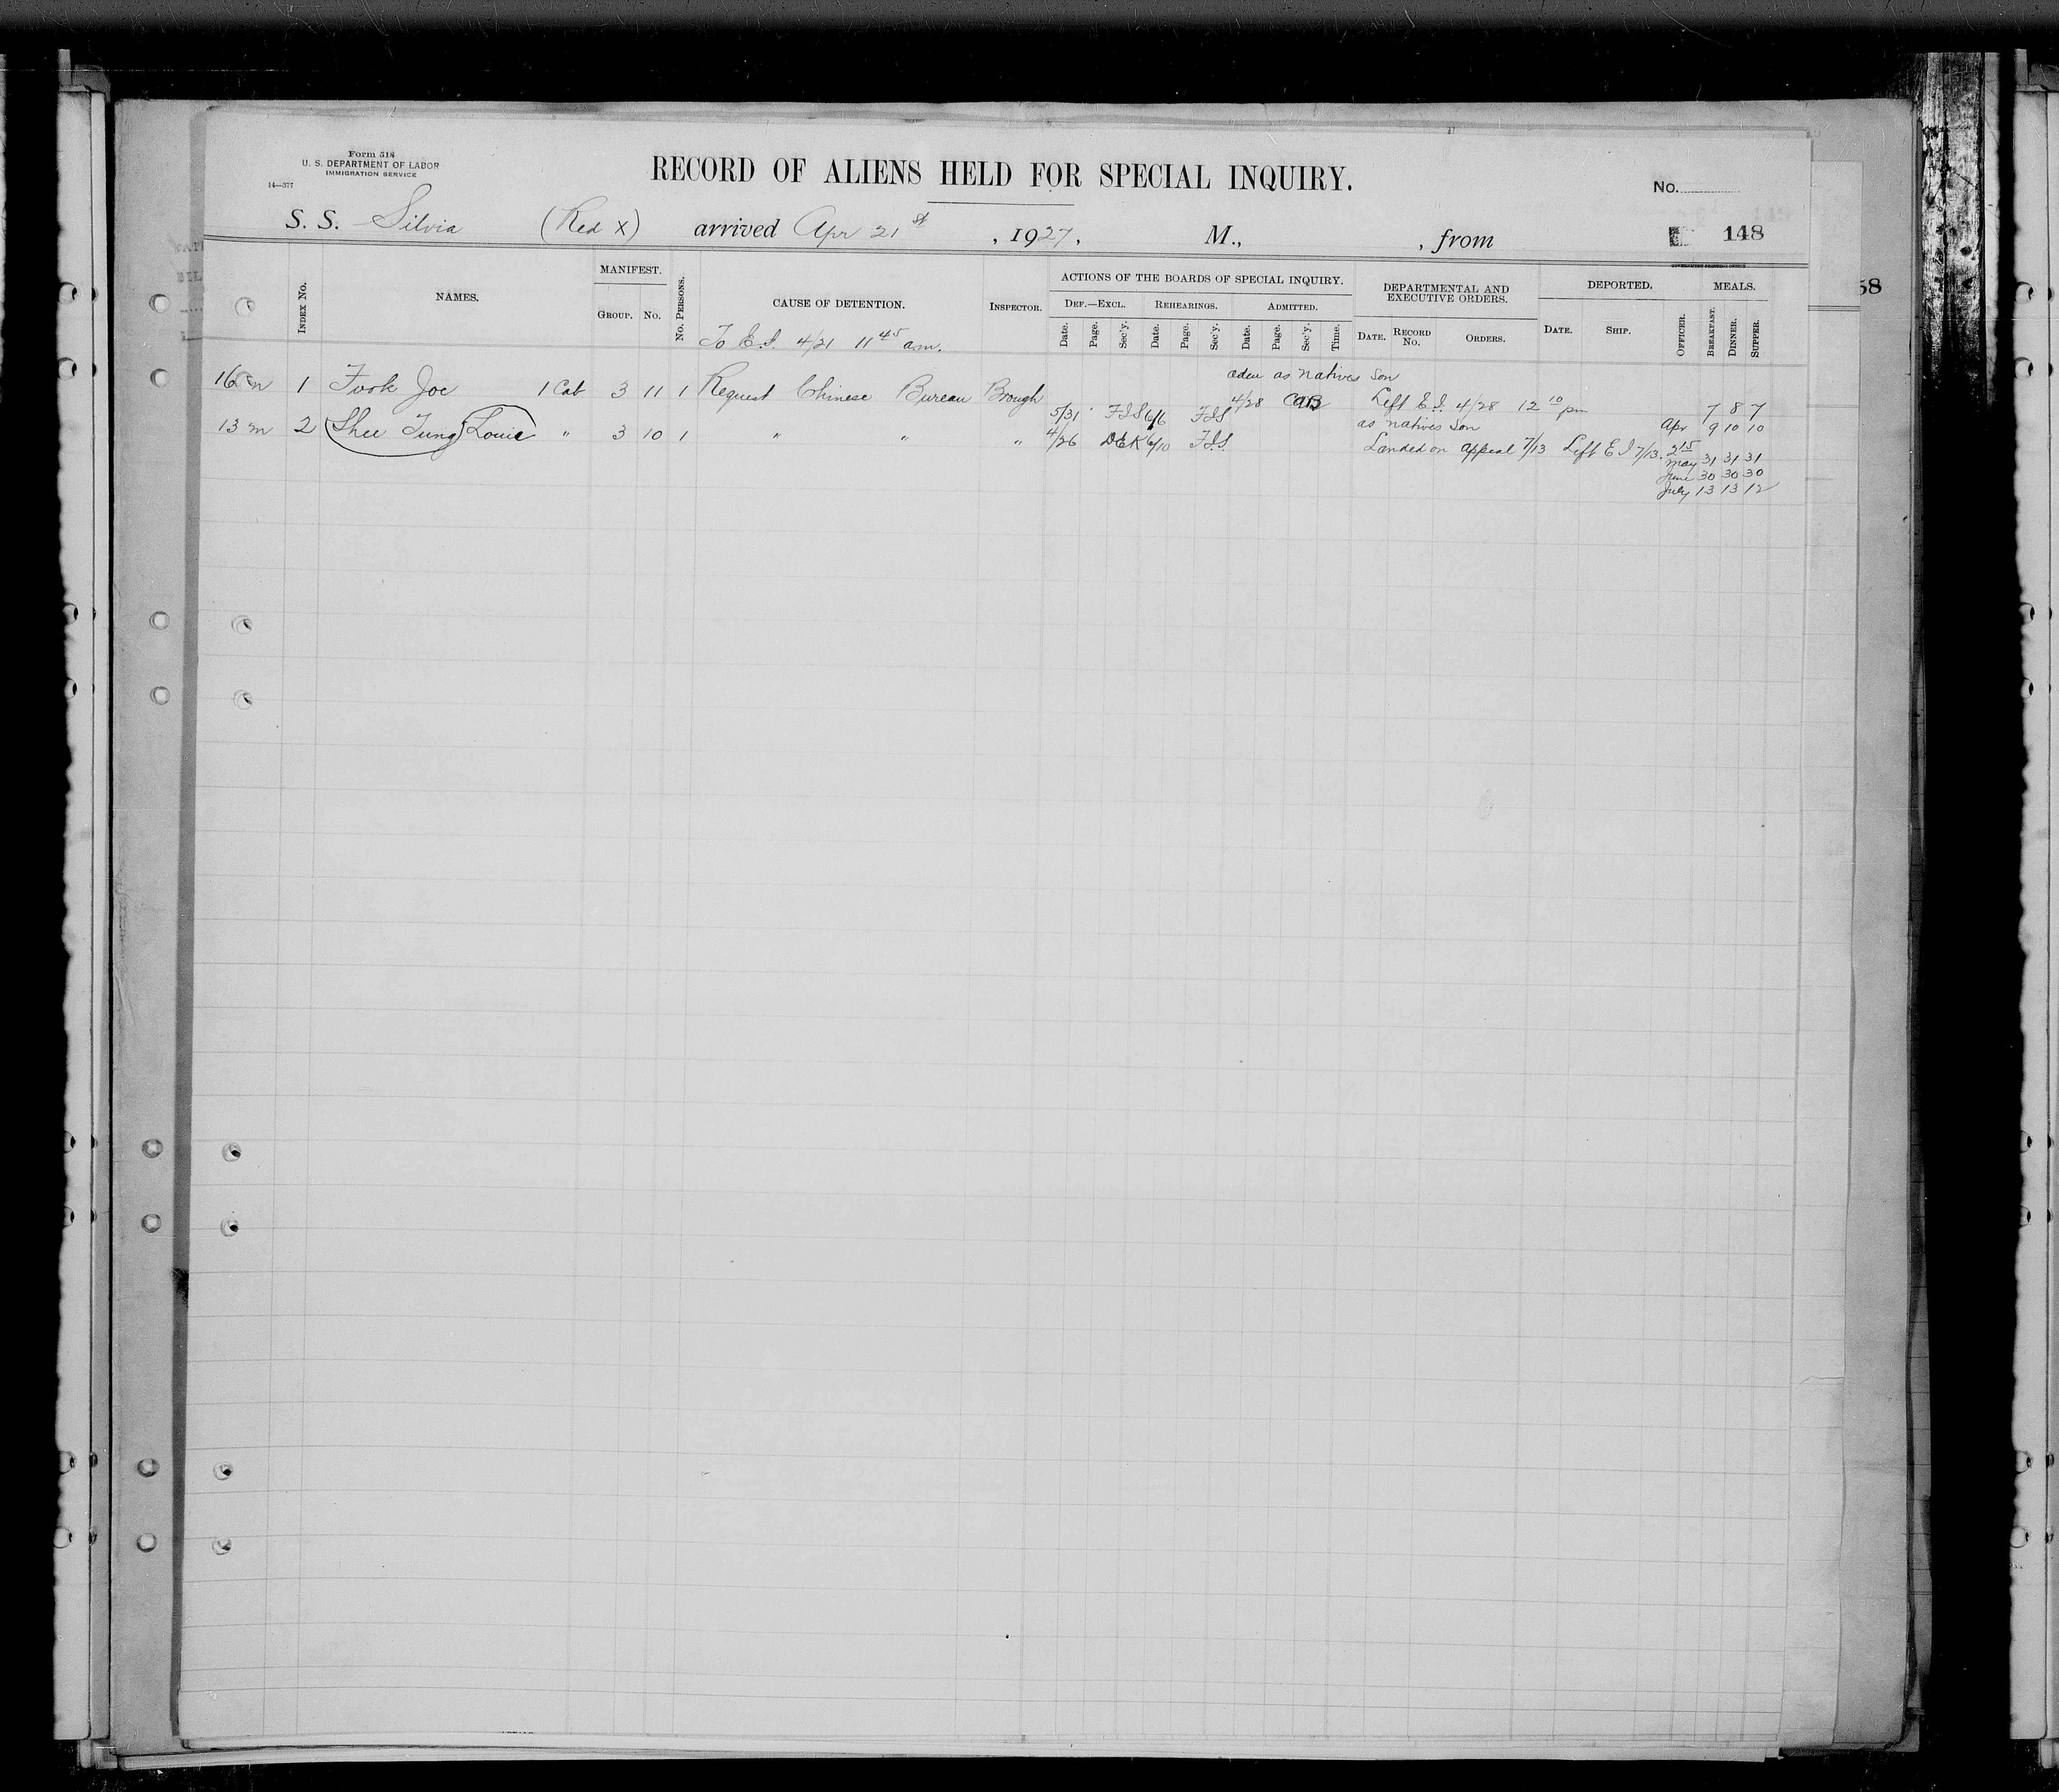 Form 518
U. S. DEPARTMENT OF LABOR
IMMIGRATION SERVICE
14—377
RECORD OF ALIENS HELD FOR SPECIAL INQUIRY.
No.
S. S. Silvia (Red X) arrived Apr 21st, 1927, M., , from
148
58
INDEX No.
NAMES.
MANIFEST.
GROUP. No.
No. PERSONS.
CAUSE OF DETENTION.
INSPECTOR.
ACTIONS OF THE BOARDS OF SPECIAL INQUIRY.
DEF.—EXCL. REHEARINGS. ADMITTED.
Date. Page. Sec'y. Date. Page. Sec'y. Date. Page. Sec'y. Time.
DEPARTMENTAL AND
EXECUTIVE ORDERS.
DATE. RECORD No. ORDERS.
DEPORTED.
DATE. SHIP.
OFFICER.
MEALS.
BREAKFAST. DINNER. SUPPER.
To E.I. 4/21 11 45 a.m.
as natives son
16 m 1 Fook Joe 1 Cab 3 11 1 Request Chinese Bureau Brough 4/28 CAB Left E.I. 4/28 12 10 pm 7 8 7
5/31 FIS 6/6 FIS as natives son Apr 9 10 10
13 m 2 Shee Tung Louie " 3 10 1 " " " 4/26 DEK 6/10 FIS. Landed on appeal 7/13 Left E I 7/13. 2 15
May 31 31 31
June 30 30 30
July 13 13 12